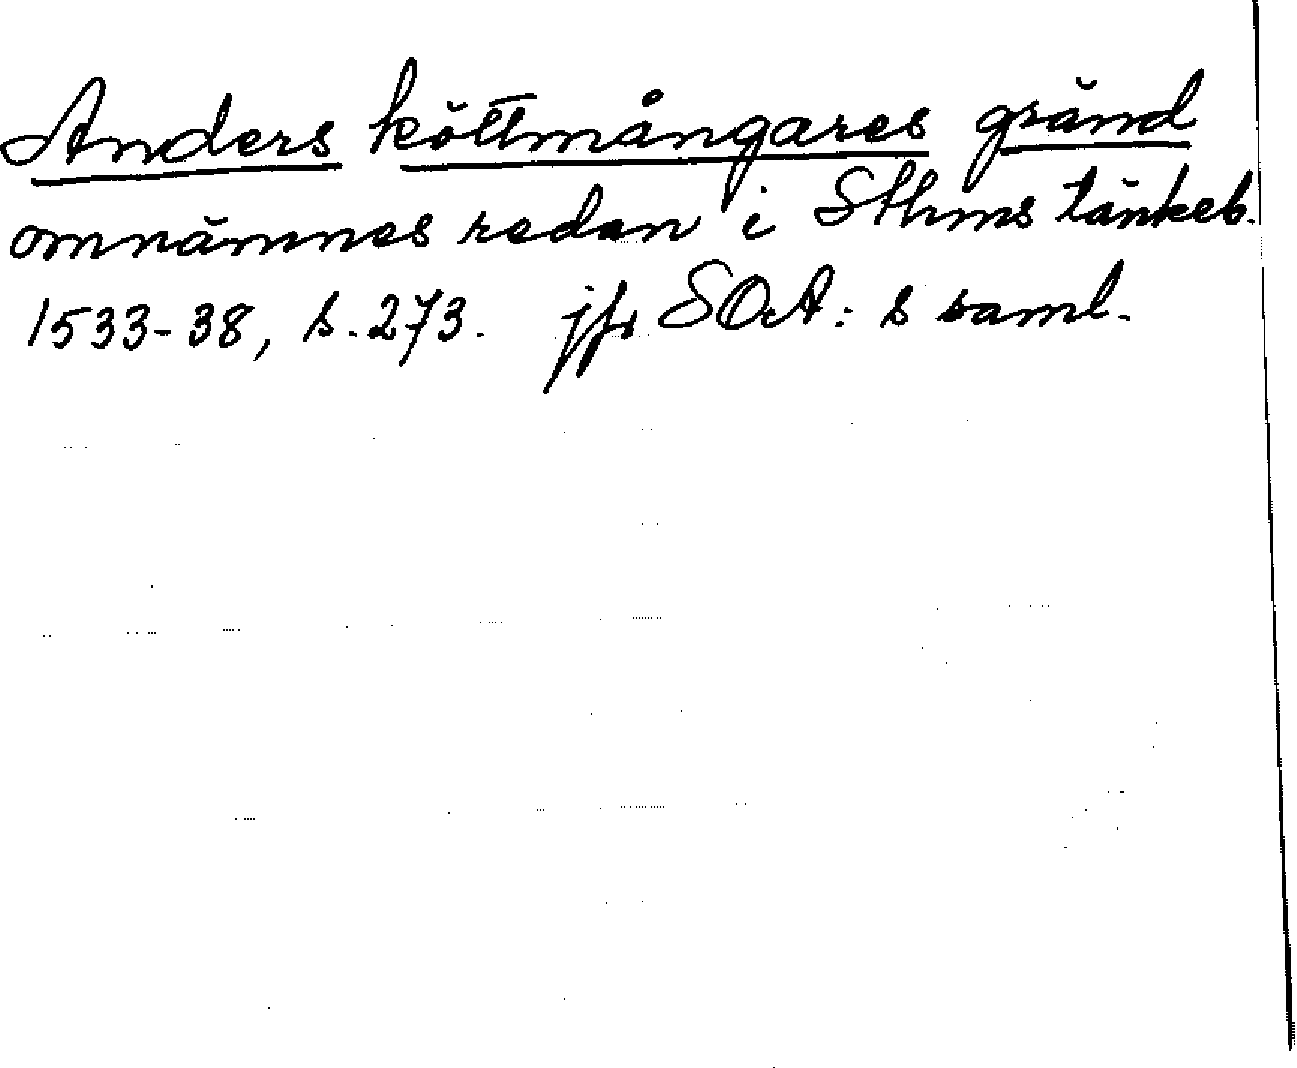 Anders köttmångares gränd
omnämnes redan i Sthms tänkeb.
1533-38, s. 273. jfr SOA: s saml.